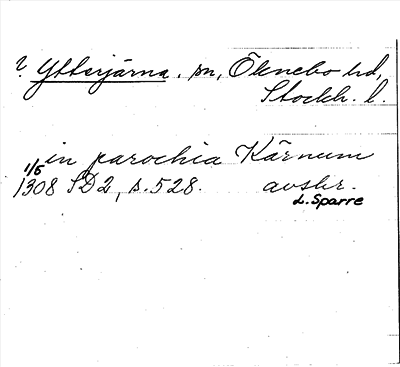 ? Ytterjärna. sn, Öknebo hd,
Stockh. l.
in parochia Kärnum
1/5
1308 SD2, s. 528. avskr.
L. Sparre